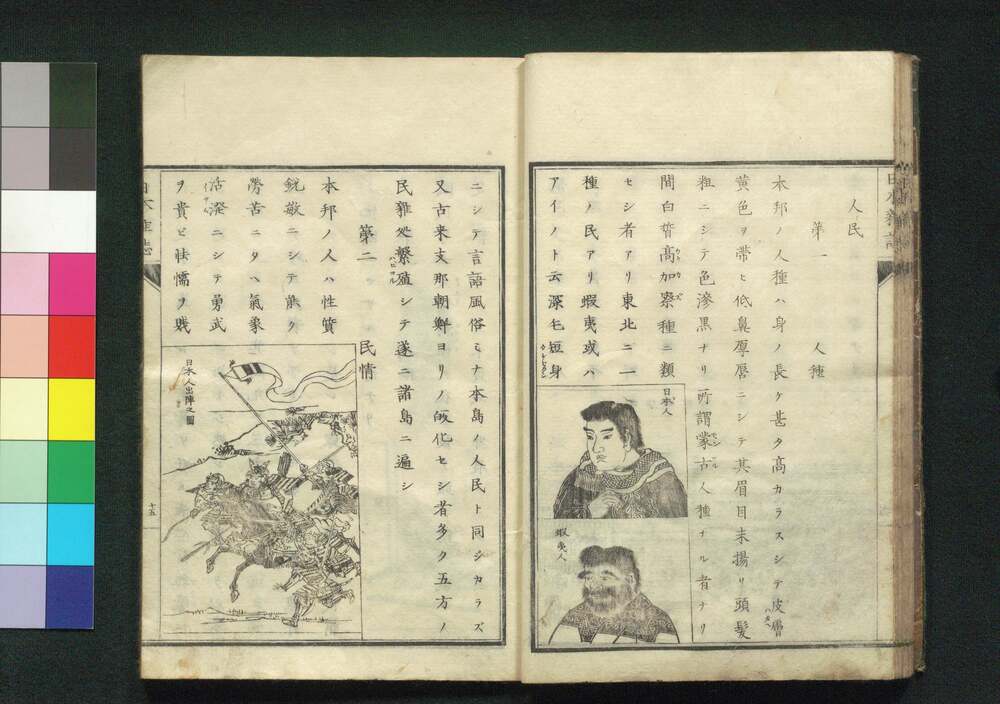 日本雑誌
人民
第一 人種
本邦ノ人種ハ身ノ長ケ甚タ高カラスシテ皮膚ハタヘ
黄色ヲ帯ヒ低鼻厚唇ニシテ其眉目末揚リ頭髪
粗ニシテ色滲黒ナリ所謂蒙古モンゴル人種ナル者ナリ
間白晳高加索カウカズ種ニ類
セシ者アリ東北ニ一
種ノ民アリ蝦夷或ハ
アイノト云深毛短身
日本人
蝦夷人
ニシテ言語風俗ミナ本島ノ人民ト同シカラズ
又古来支那朝鮮ヨリノ皈化セシ者多ク五方ノ
民雑処繁殖シテ遂ニ諸島ニ遍シ
第二 民情
本邦ノ人ハ性質
鋭敏ニシテ能ク
労苦ニタヘ氣象
活溌ニシテ勇武
ヲ貴ヒ怯懦ヲ賎
日本人出陣之圖
日本雑誌
十五